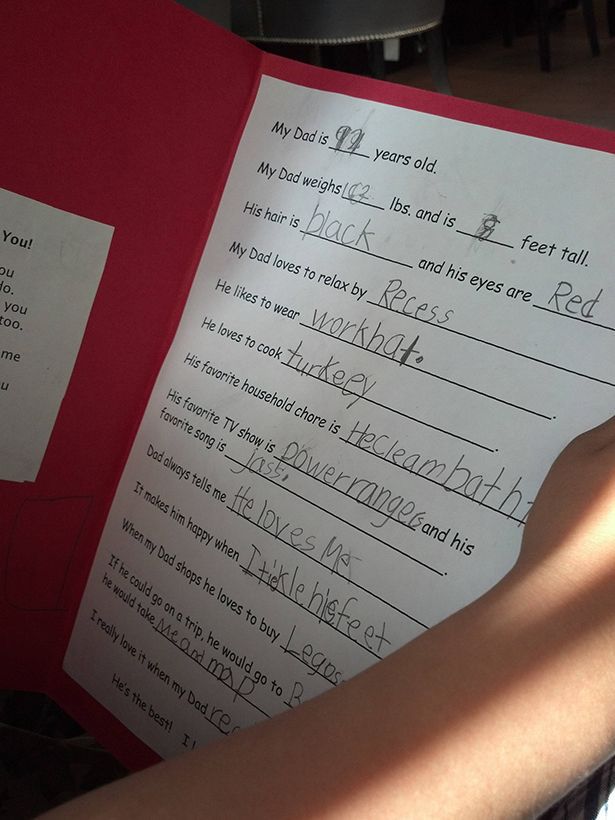 You!
ou
do.
you
too.
me
u
My Dad is years old.
My Dad weighs lbs. and is feet tall.
His hair is black and his eyes are Red
My Dad loves to relax by Recess
He likes to wear workhat.
He loves to cook turkeey.
His favorite household chore is Hecleambath
His favorite TV show is powerrangers and his
favorite song is Jass.
Dad always tells me He loves Me.
It makes him happy when I tickle hisfeet
When my Dad shops he loves to buy Legos
If he could go on a trip, he would go to B
he would take Me and
I really love it when my Dad re
He's the best! I